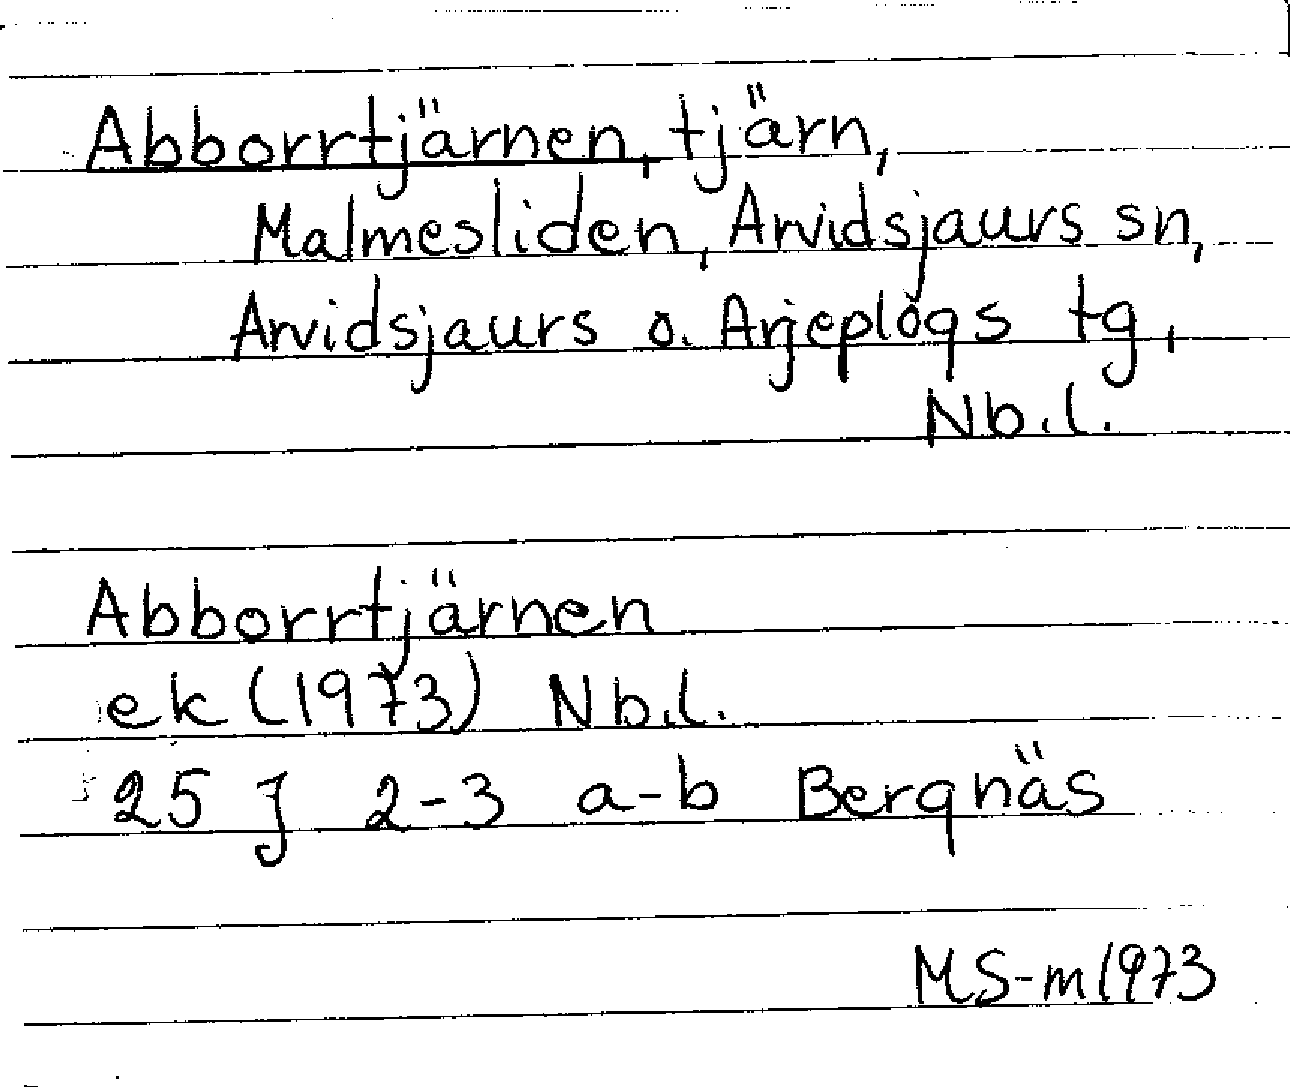 Abborrtjärnen, tjärn,
Malmesliden, Arvidsjaurs sn,
Arvidsjaurs o. Arjeplogs tg,
Nb.l.
Abborrtjärnen
ek (1973) Nb.l.
25 J 2-3 a-b Bergnäs
MS-m1973